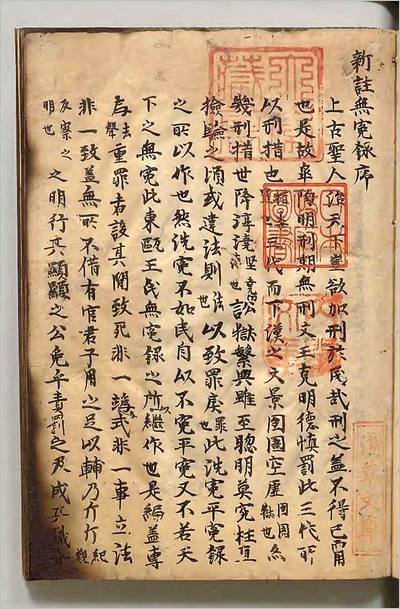 新註無冤錄序
上古聖人治天下豈欲加刑於民哉刑之蓋不得已而
也是故皐陶明刑期無刑文王克明德慎罰此三代所
以刑措也 三代而下漢之文景囹圄空虛囹圄獄也
幾刑措世降淳澆 訟獄繁興雖至聰明莫究枉直
檢驗之須或違法則 也以致罪戾也罪此洗冤平冤錄
之所以作也然洗冤不如民自以不冤平冤又不若天
下之無冤此東甌王氏無冤錄之所繼作也是編蓋專
為 重罪者設其間致死非一端式非一事立法
非一致蓋無所不備有官君子用之足以輔乃
反察之明也 之明行其顯顯之公免乎責罰之及成